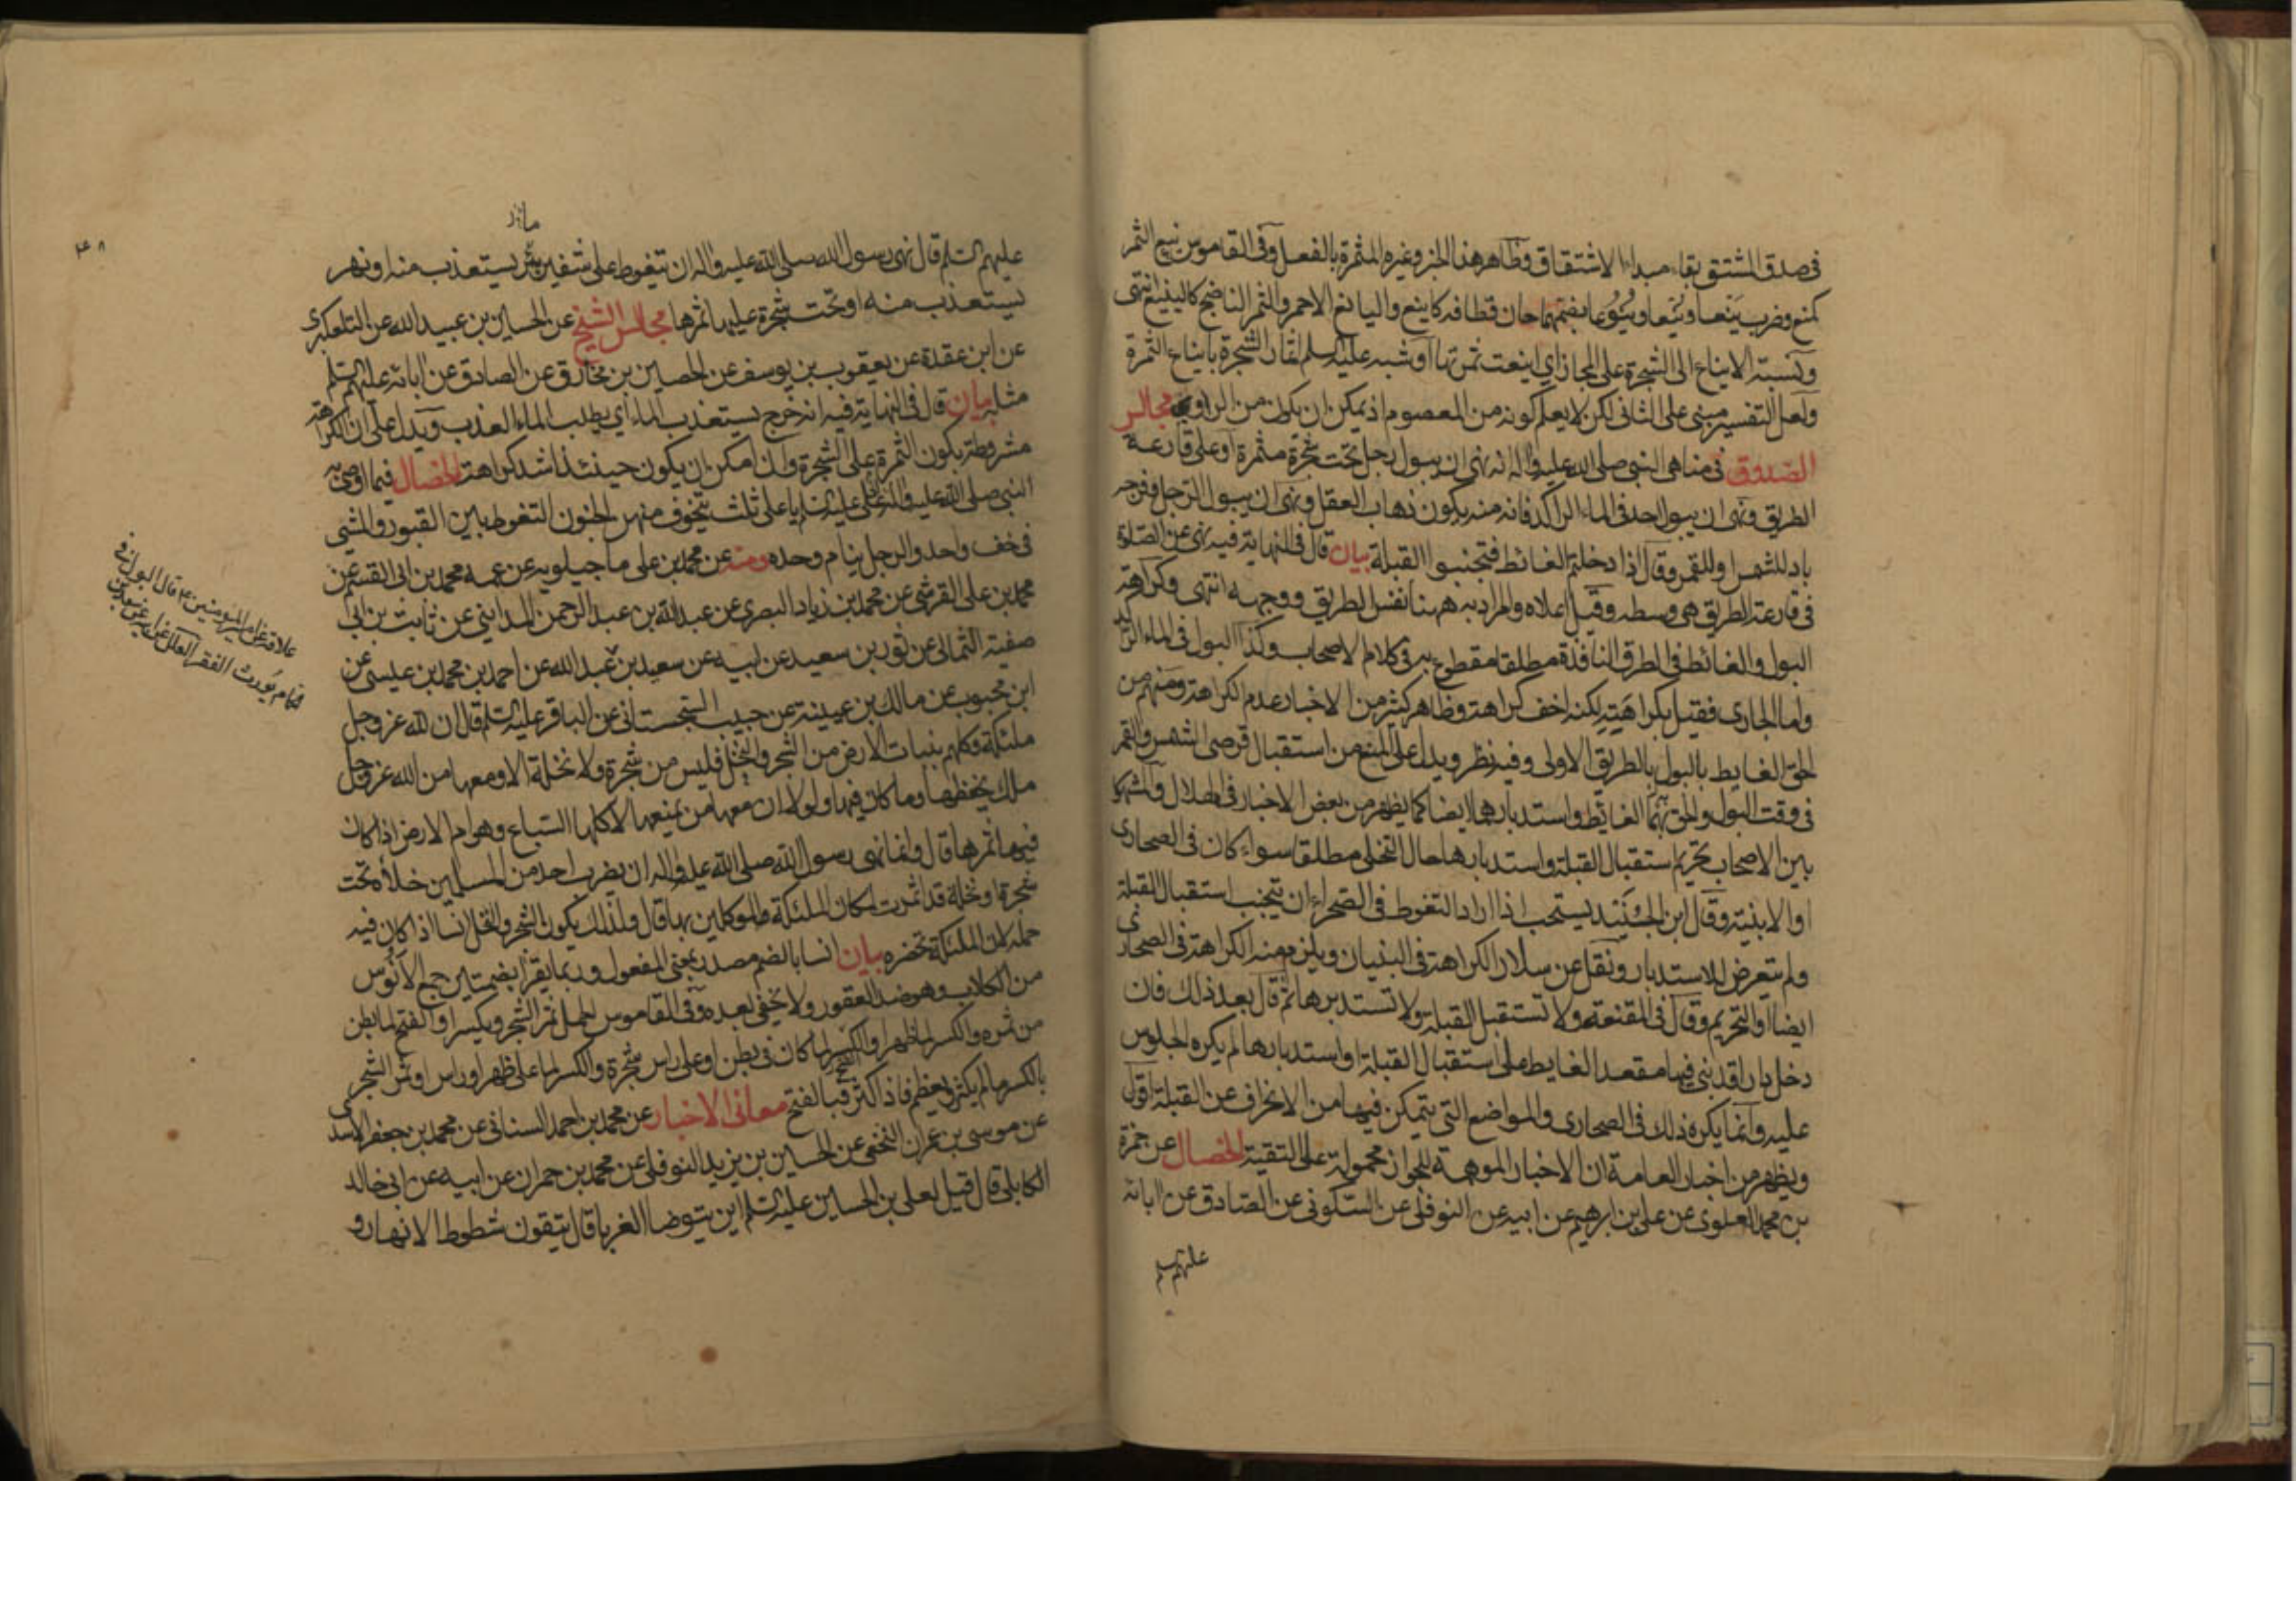 في صدق المشتق بقاء مبداء الاشتقاق وظاهر هذا الخبر وغيره المثمرة بالفعل وفي القاموس ينع الثمر
كمنع وضرب ينعا وينعا وينوعا بضمهما حان قطافه كاينع واليانع الاحمر والثمر الناضج كالينيع انتهى
ونسبة الايناع الى الشجرة على المجاز اي اينعت ثمرتها او شبه عليه السلم لقاح الشجرة بايناع الثمرة
ولعل التفسير مبني على الثاني لكن لا يعلم كونه من المعصوم اذ يمكن ان يكون من الراوي مجالس
الصدوق في مناهي النبي صلى الله عليه واله انه نهى ان يبول رجل تحت شجرة مثمرة او على قارعة
الطريق ونهى ان يبول احد في الماء الراكد فانه منه يكون ذهاب العقل ونهى ان يبول الرجل وفرجه
باد للشمس او للقمر وقال اذا دخلتم الغائط فتجنبوا القبلة بيان قال في النهاية فيه نهى عن الصلوة
في قارعة الطريق هي وسطه وقيل اعلاه والمراد به ههنا نفس الطريق ووجهه انتهى وكراهة
البول والغائط في الطرق النافذة مطلقا مقطوع به في كلام الاصحاب وكذا البول في الماء الراكد
واما الجاري فقيل بكراهته لكنه اخف كراهة وظاهر كثير من الاخبار عدم الكراهة ومنهم من
الحق الغايط بالبول بالطريق الاولى وفيه نظر ويدل على المنع من استقبال قرصي الشمس والقمر
في وقت البول والحق بهما الغائط واستدبارهما ايضا كما يظهر من بعض الاخبار في الهلال والمشهور
بين الاصحاب تحريم استقبال القبلة واستدبارها حال التخلي مطلقا سواء كان في الصحارى
او الابنية وقال ابن الجنيد يستحب اذا اراد التغوط في الصحراء ان يتجنب استقبال القبلة
ولم يتعرض للاستدبار ونقل عن سلار الكراهة في البنيان ويلزم منه الكراهة في الصحارى
ايضا او التحريم وقال في المقنعة ولا تستقبل القبلة ولا تستدبرها ثم قال بعد ذلك فان
دخل دارا قد بني فيها مقعد الغايط على استقبال القبلة او استدبارها لم يكره الجلوس
عليه وانما يكره ذلك في الصحارى والمواضع التي يتمكن فيها من الانحراف عن القبلة اقول
ويظهر من اخبار العامة ان الاخبار الموهمة للجواز محمولة على التقية الخصال عن حمزة
بن محمد العلوي عن علي بن ابرهيم عن ابيه عن النوفلي عن السكوني عن الصادق عن ابائه
عليهم
عليهم السلم قال نهى رسول الله صلى الله عليه واله ان يتغوط على شفير بئر يستعذب منها او نهر
يستعذب منه او تحت شجرة عليها ثمرها مجالس الشيخ عن الحسين بن عبيد الله عن التلعكبري
عن ابن عقدة عن يعقوب بن يوسف عن الحصين بن مخارق عن الصادق عن ابائه عليهم السلم
مثله بيان قال في النهاية فيه انه خرج يستعذب الماء اي يطلب الماء العذب ويدل على ان الكراهة
مشروطة بكون الثمرة على الشجرة وان امكن ان يكون حينئذ اشد كراهة الخصال فيما اوصى به
النبي صلى الله عليه واله عليا عليه السلم يا علي ثلث يتخوف منهن الجنون التغوط بين القبور والمشي
في خف واحد والرجل ينام وحده ومنه عن محمد بن علي ماجيلويه عن عمه محمد بن ابي القسم عن
محمد بن علي القرشي عن محمد بن زياد البصري عن عبد الله بن عبد الرحمن المدايني عن ثابت بن ابي
صفية الثمالي عن ثور بن سعيد عن ابيه سعيد بن
علاقة عن امير المؤمنين ع قال البول في
الحمام يورث الفقر العلل عن ابيه عن سعد بن
عبد الله عن احمد بن محمد بن عيسى عن
ابن محبوب عن مالك بن عيينة عن حبيب السجستاني عن الباقر عليه السلم قال ان لله عز وجل
ملئكة وكلهم بنبات الارض من الشجر والنخل فليس من شجرة ولا نخلة الا ومعها من الله عز وجل
ملك يحفظها وما كان فيها ولولا ان معها من يمنعها لاكلها السباع وهوام الارض اذا كان
فيها ثمرها قال وانما نهى رسول الله صلى الله عليه واله ان يضرب احد من المسلمين خلاه تحت
شجرة او نخلة قد اثمرت لمكان الملئكة الموكلين بها قال ولذلك يكون الشجر والنخل انسا اذا كان فيه
حمله لان الملئكة تحضره بيان انسا بالضم مصدر بمعنى المفعول وربما يقرا بضمتين جمع الانوس
من الكلاب وهو ضد العقور ولا يخفى بعده وفي القاموس الحمل ثمر الشجر ويكسر او الفتح لما بطن
من ثمره والكسر لما ظهر او الفتح لما كان في بطن او على راس شجرة والكسر لما على ظهر او راس او ثمر الشجر
بالكسر ما لم يكثر ويعظم فاذا كثر فبالفتح معاني الاخبار عن محمد بن احمد السناني عن محمد بن جعفر الاسدي
عن موسى بن عمران النخعي عن الحسين بن يزيد النوفلي عن محمد بن حمران عن ابيه عن ابي خالد
الكابلي قال قيل لعلي بن الحسين عليه السلم اين يتوضا الغربا قال يتقون شطوط الانهار و